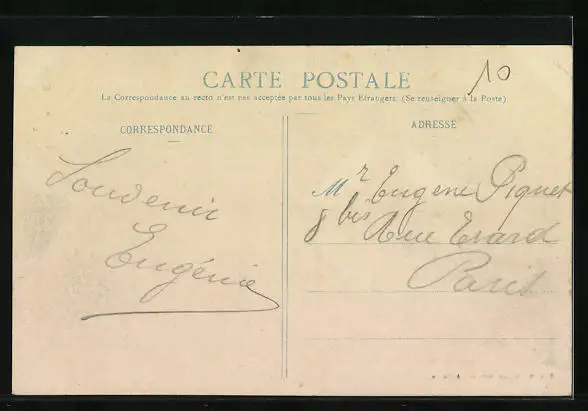 10
CARTE POSTALE
La Correspondance au recto n'est pas acceptée par tous les Pays Etrangers. (Se renseigner à la Poste)
CORRESPONDANCE
ADRESSE
Souvenir
Eugénie
Mr Eugene Piquet
8 bis Rue Erard
Paris